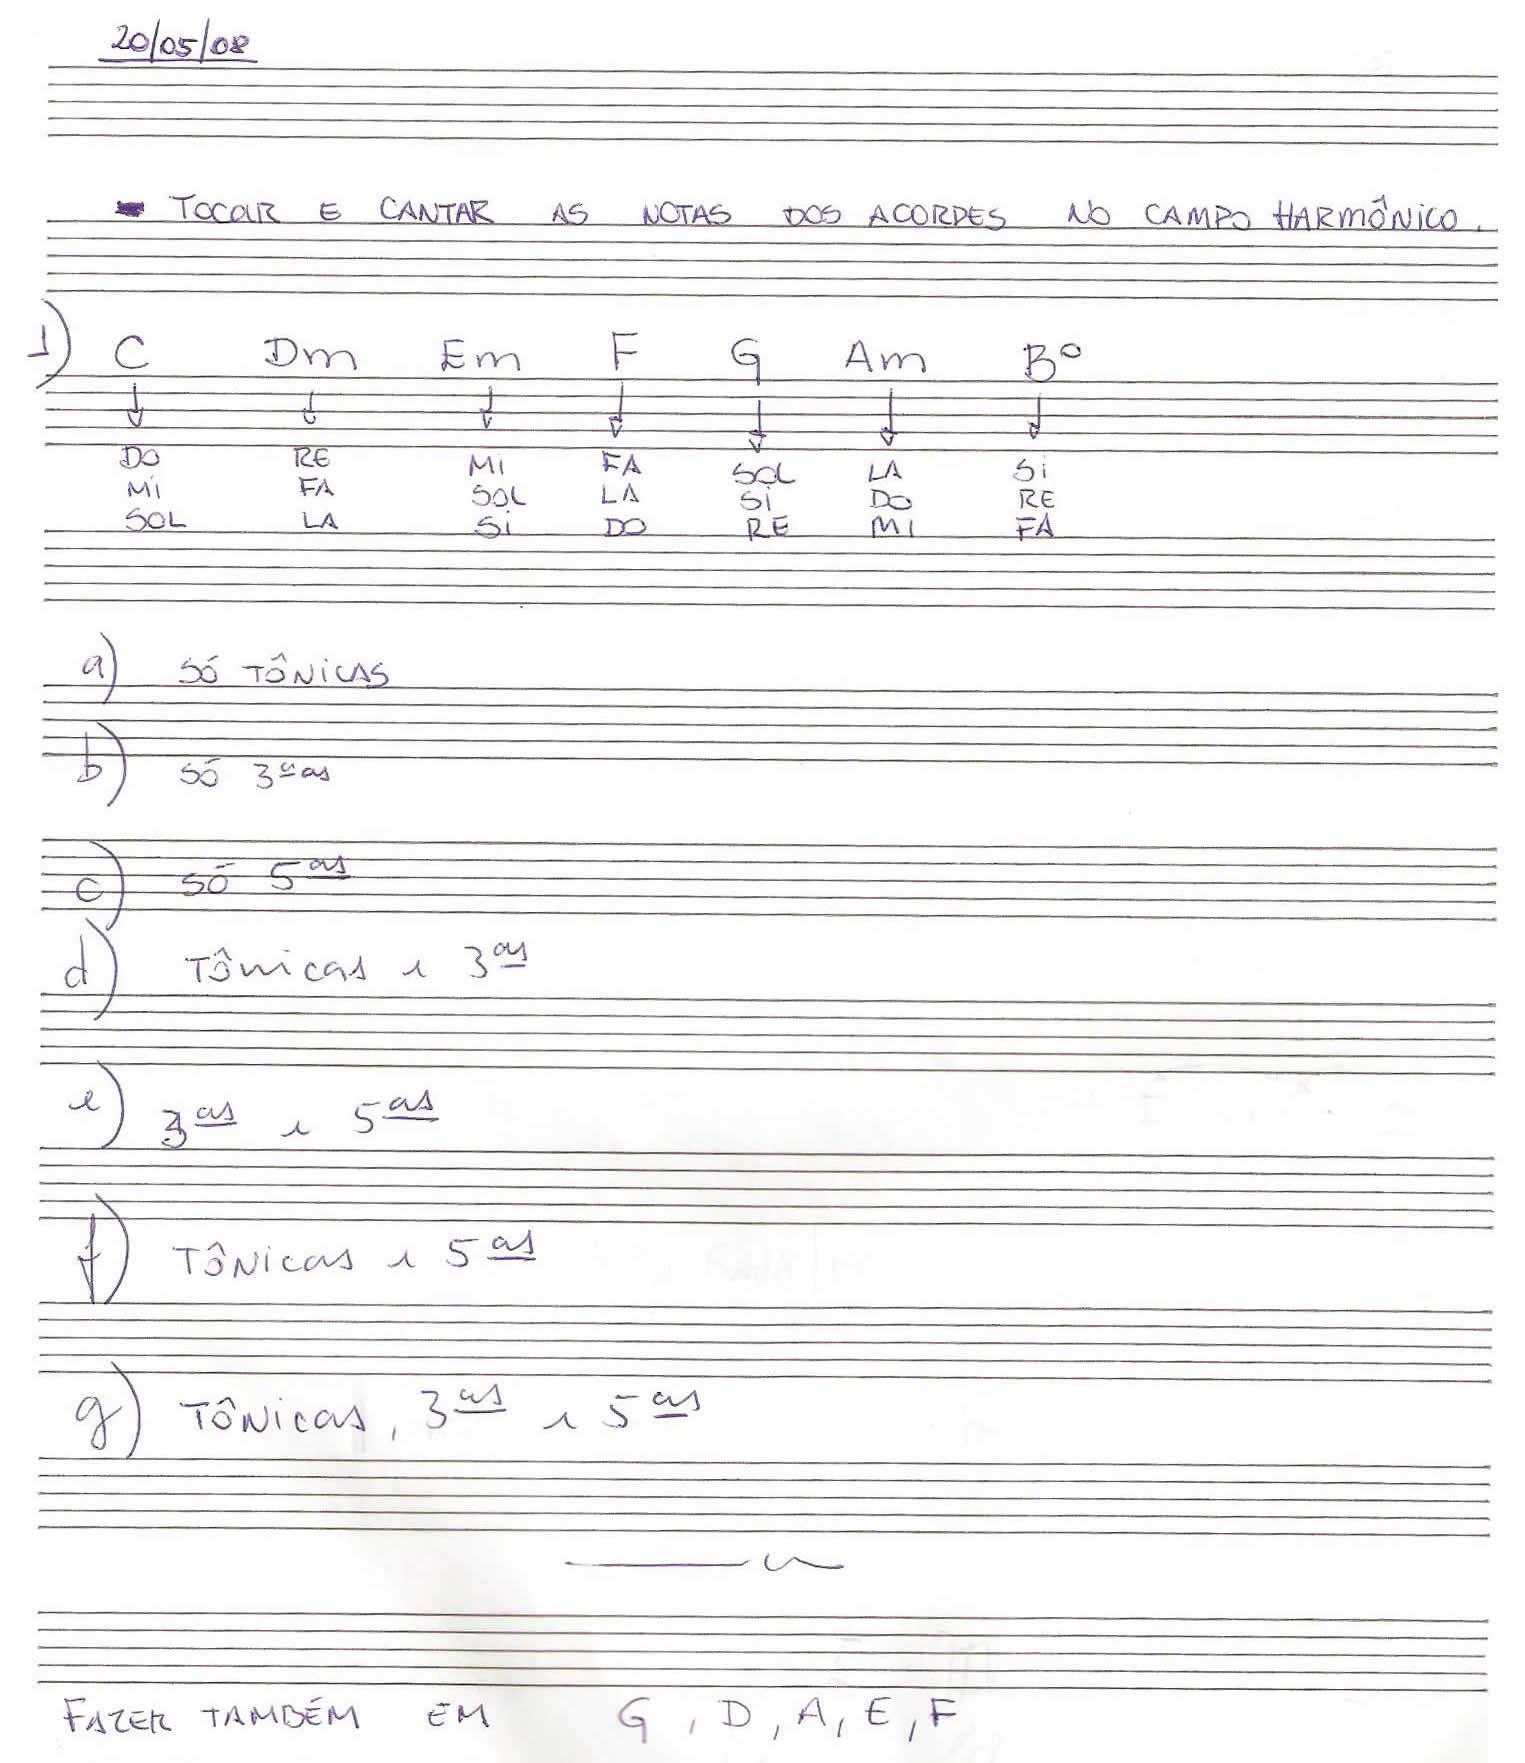 20/05/08
- TOCAR E CANTAR AS NOTAS DOS ACORDES NO CAMPO HARMÔNICO.
1) C Dm Em F G Am Bº
DO RE MI FA SOL LA Si
Mi FA SOL LA Si DO RE
SOL LA Si DO RE MI FA
a) SÓ TÔNiCAS
b) SÓ 3ªas
c) SÓ 5as
d) TÔnicas e 3as
e) 3as e 5as
f) TÔNicas e 5as
g) TÔNicas, 3as e 5as
FAZER TAMBÉM EM G, D, A, E, F